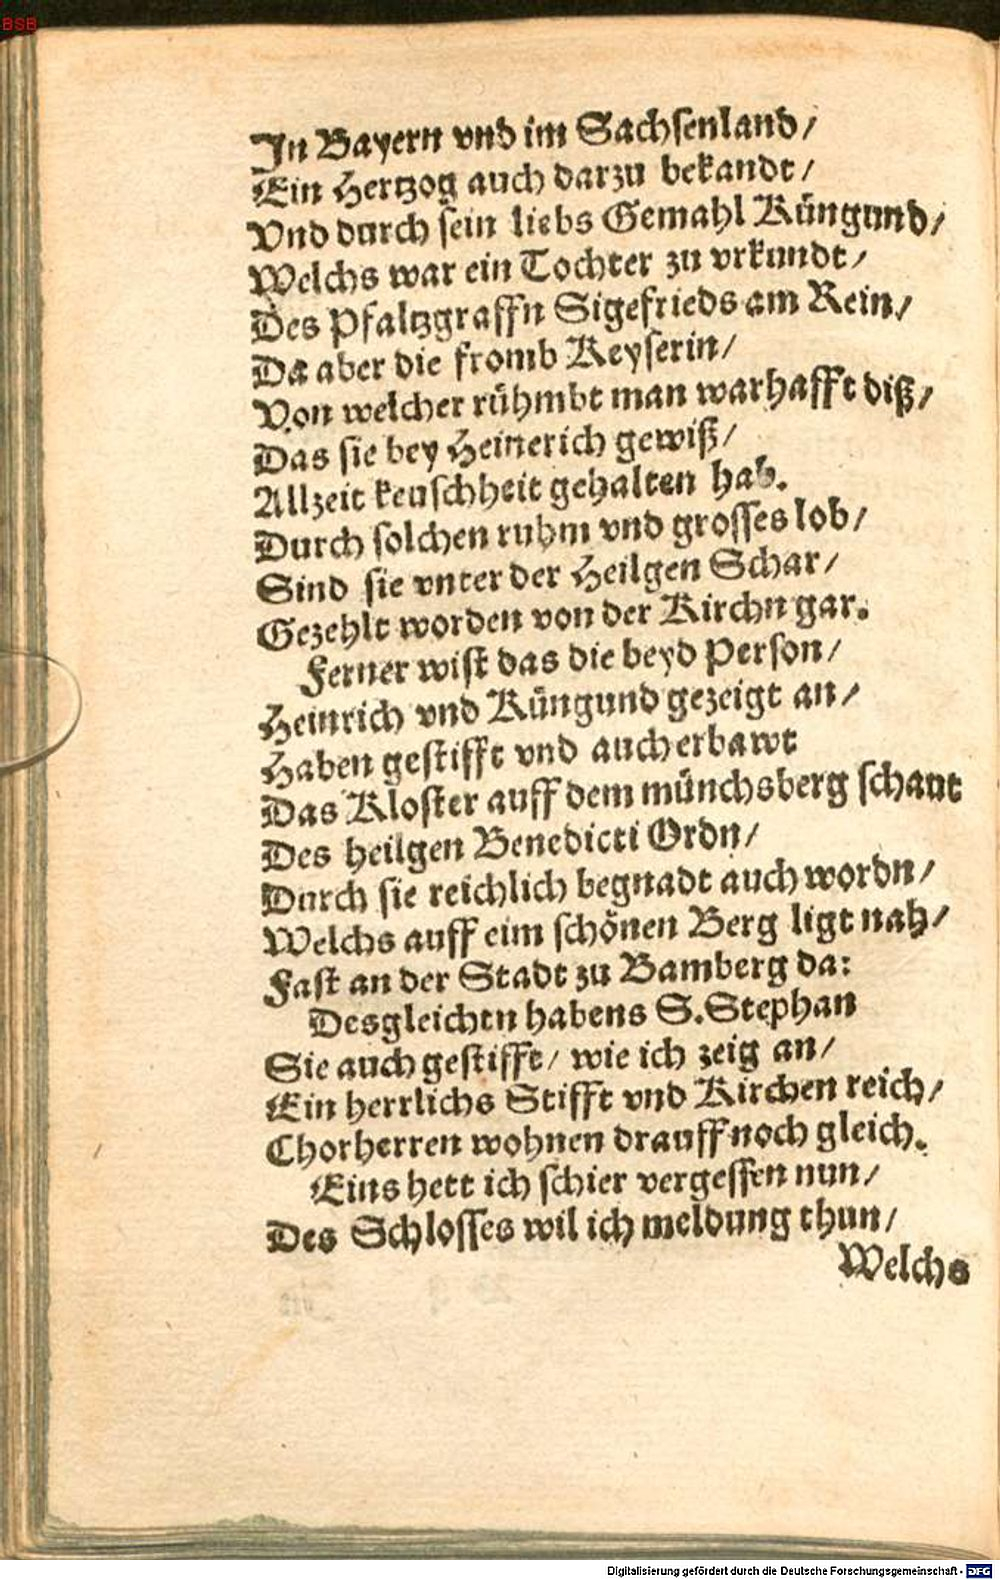 BSB
In Bayern vnd im Sachsenland/
Ein Hertzog auch darzu bekandt/
Vnd durch sein liebs Gemahl Küngund/
Welchs war ein Tochter zu vrkundt/
Des Pfaltzgraffn Sigefrieds am Rein/
Da aber die fromb Keyserin/
Von welcher rühmbt man warhafft diß/
Das sie bey Heinerich gewiß/
Allzeit keuschheit gehalten hab.
Durch solchen ruhm vnd grosses lob/
Sind sie vnter der Heilgen Schar/
Gezehlt worden von der Kirchn gar.
Ferner wist das die beyd Person/
Heinrich vnd Küngund gezeigt an/
Haben gestifft vnd auch erbawt
Das Kloster auff dem münchsberg schaut
Des heilgen Benedicti Ordn/
Durch sie reichlich begnadt auch wordn/
Welchs auff eim schönen Berg ligt nah/
Fast an der Stadt zu Bamberg da:
Desgleichen habens S. Stephan
Sie auch gestifft/ wie ich zeig an/
Ein herrlichs Stifft vnd Kirchen reich/
Chorherren wohnen drauff noch gleich.
Eins hett ich schier vergessen nun/
Des Schlosses wil ich meldung thun/
Welchs
Digitalisierung gefördert durch die Deutsche Forschungsgemeinschaft - DFG